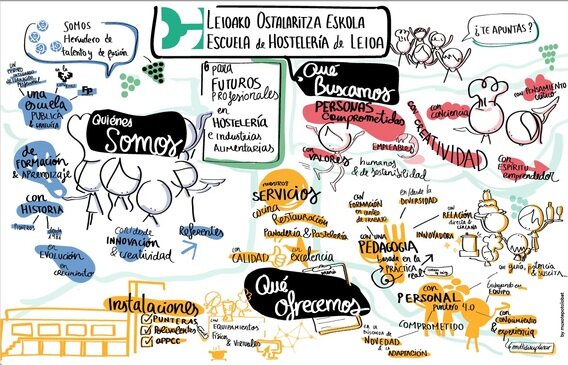 LEIOAKO OSTALARITZA ESKOLA
ESCUELA de HOSTELERÍA de LEIOA
SOMOS
Heredero de
talento y de pasión
FP
una
escuela
PÚBLICA
& GRATUITA
de
FORMACIÓN
& Aprendizaje
con
HISTORIA
en
EVOLUCIÓN
en
CRECIMIENTO
QUIÉNES
SOMOS
Cohesionada
INNOVACIÓN
& Creatividad
Referentes
PARA
FUTUROS
PROfesionales
en
HOSTELERÍA
e Industrias
Alimentarias
Qué
Buscamos
PERSONAS
Comprometidas
EMPLEABLES
con
VALORES
humanos
& de sostenibilidad
con
CONCIENCIA
con
CREATIVIDAD
con PENSAMIENTO
CRÍTICO
con
ESPÍRITU
emprendedor
¿TE APUNTAS?
nuestros
SERVICIOS
cocina
Restauración
Panadería & Pastelería
con
CALIDAD
en
excelencia
Qué
ofrecemos
Instalaciones
PUNTERAS
Polivalentes
APPCC
con
EQUIPAMIENTOS
Físicos
& Virtuales
con
FORMACIÓN
en
centros
DE TRABAJO
DIVERSIDAD
con una
PEDAGOGÍA
basada en la
PRÁCTICA
real
INNOVADORA
con
RELACIÓN
directa
&
CERCANA
con
PERSONAL
puntero 4.0
COMPROMETIDO
en
la BÚSQUEDA
de
NOVEDAD
& la
ADAPTACIÓN
trabajando en
EQUIPO
con
conocimiento
& experiencia
by muxotepotolobat